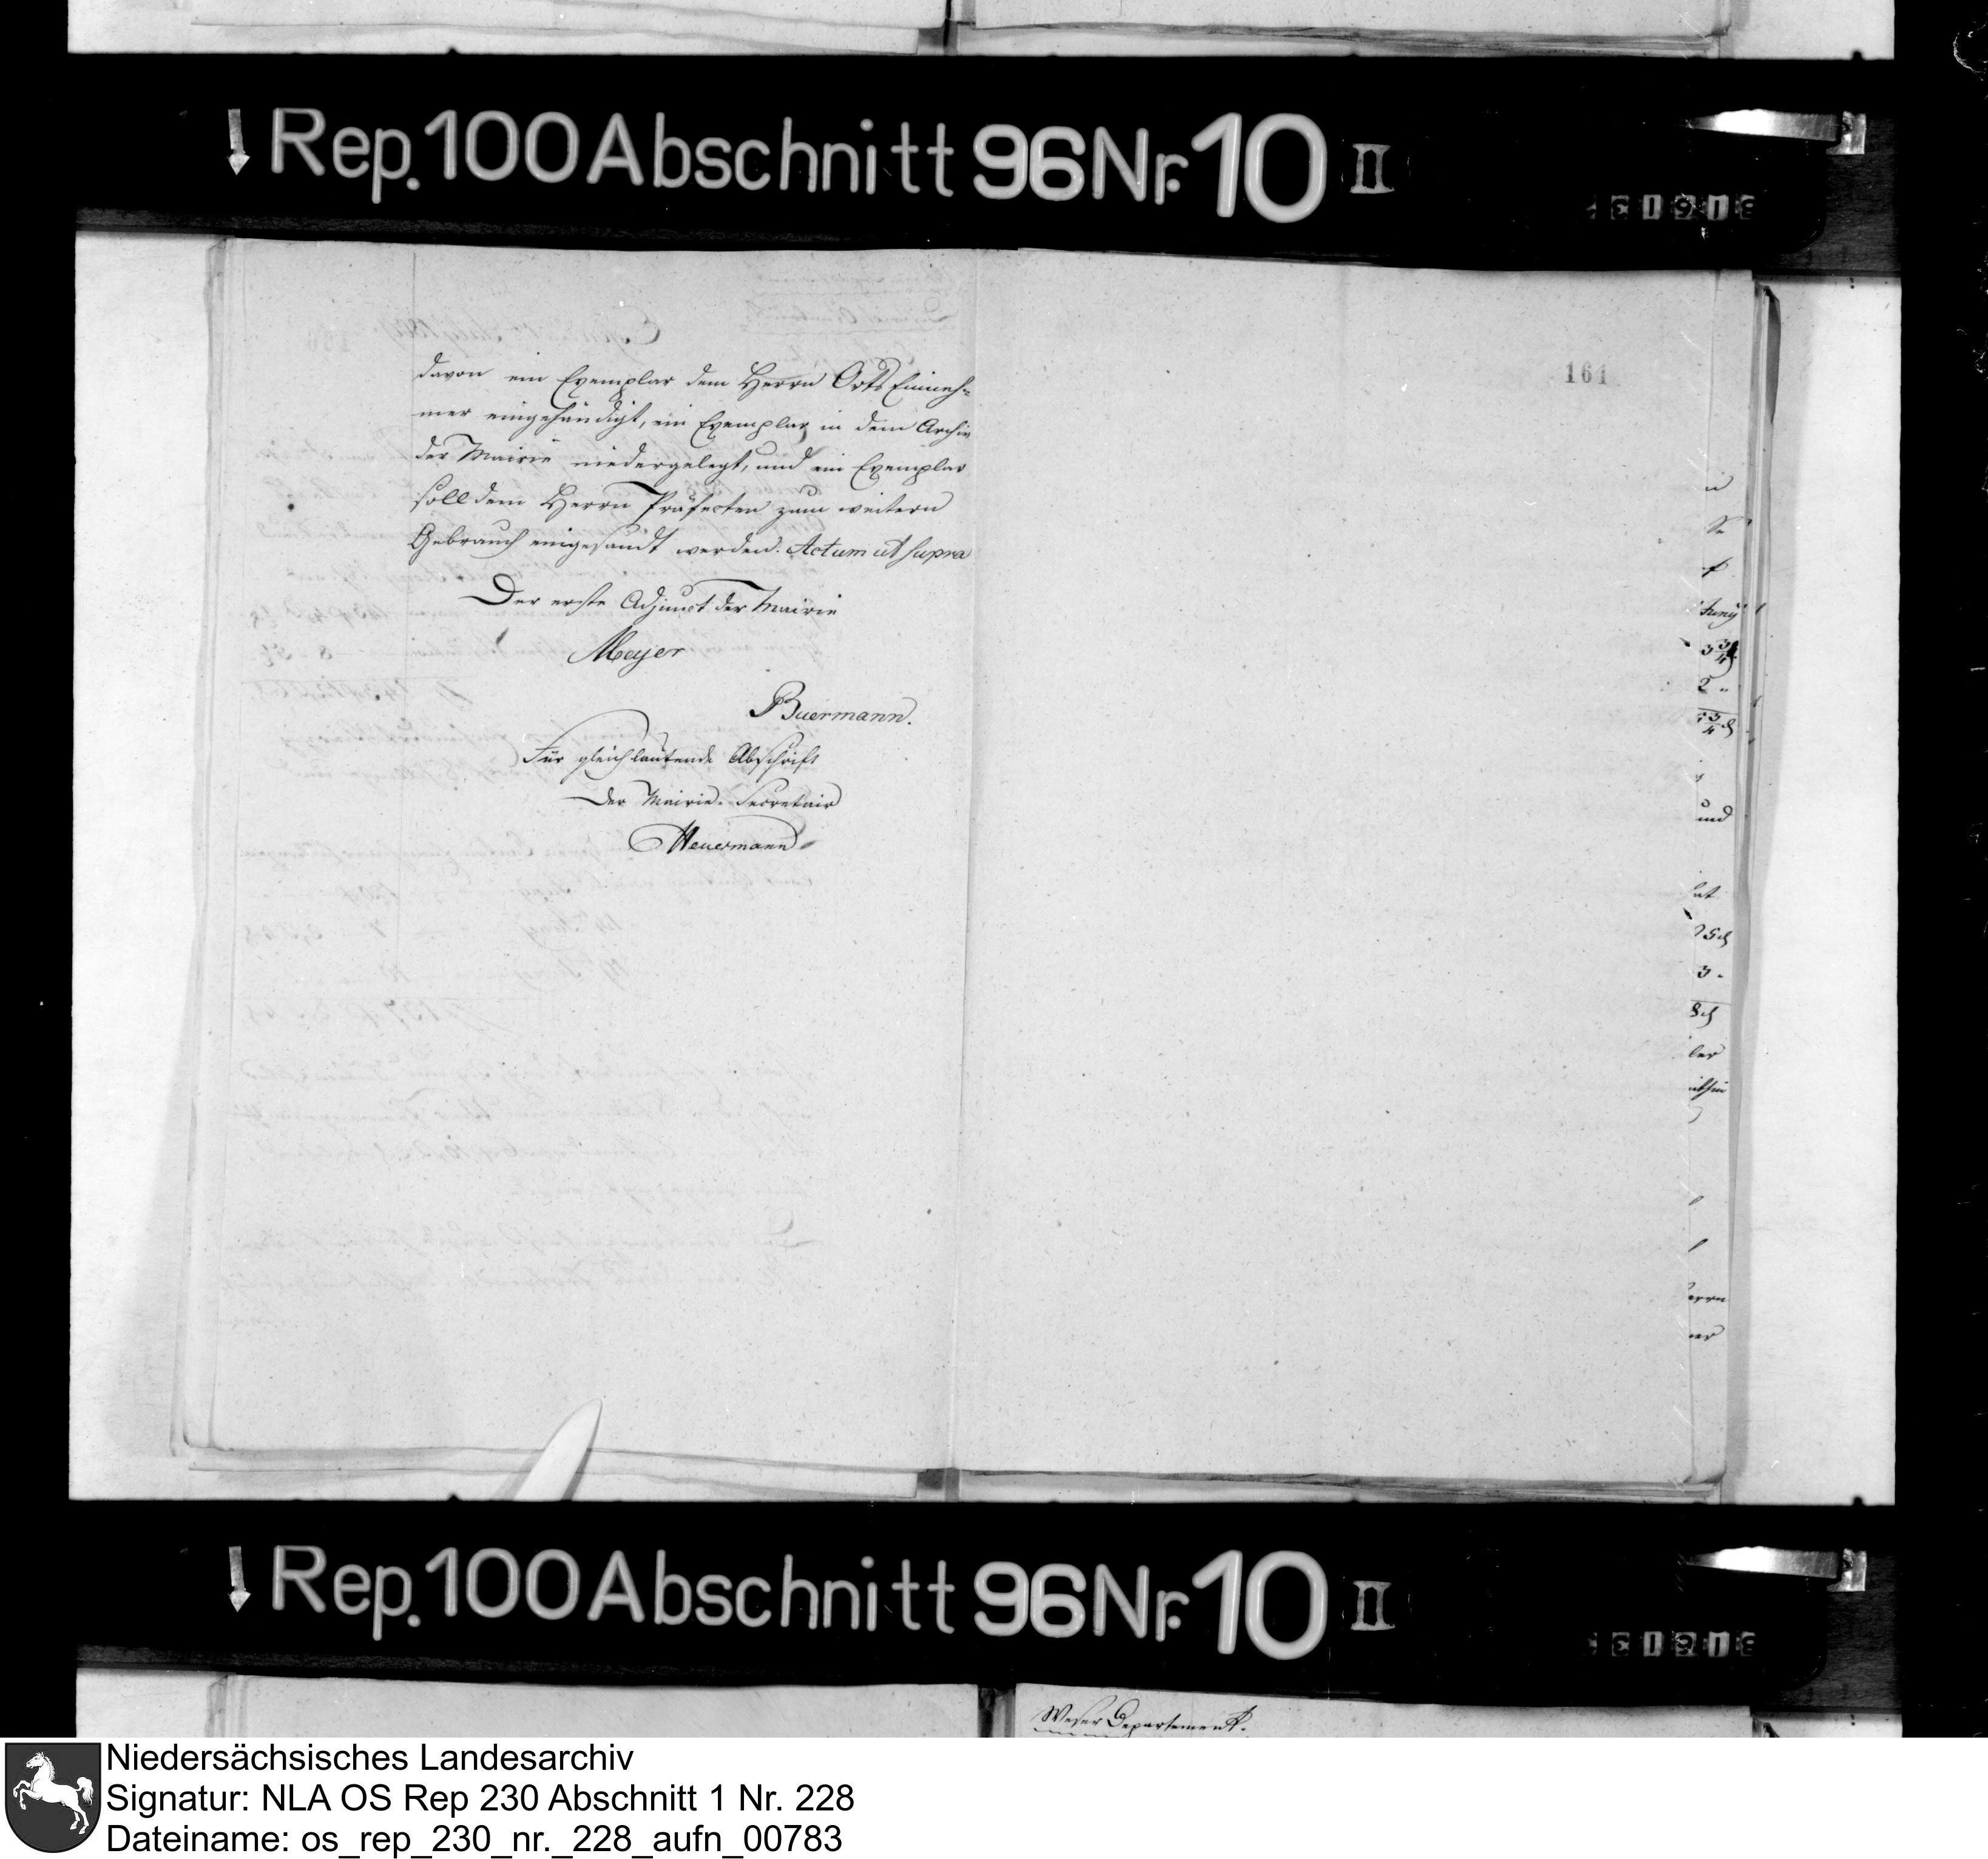 Rep. 100 Abschnitt 96 Nr. 10 II
161
davon ein Exemplar dem Herrn Orts Einneh=
mer eingehändigt, ein Exemplar in dem Archiv
der Mairie niedergelegt, und ein Exemplar
soll dem Herrn Präfecten zum weitern
Gebrauch eingesandt werden. Actum ut supra
Der erste Adjunct der Mairie
Meyer
Buermann.
Für gleichlautende Abschrift
Der Mairie-Secretair
Heuermann
und
Rep. 100 Abschnitt 96 Nr. 10 II
Weser Departement.
Niedersächsisches Landesarchiv
Signatur: NLA OS Rep 230 Abschnitt 1 Nr. 228
Dateiname: os_rep_230_nr._228_aufn_00783